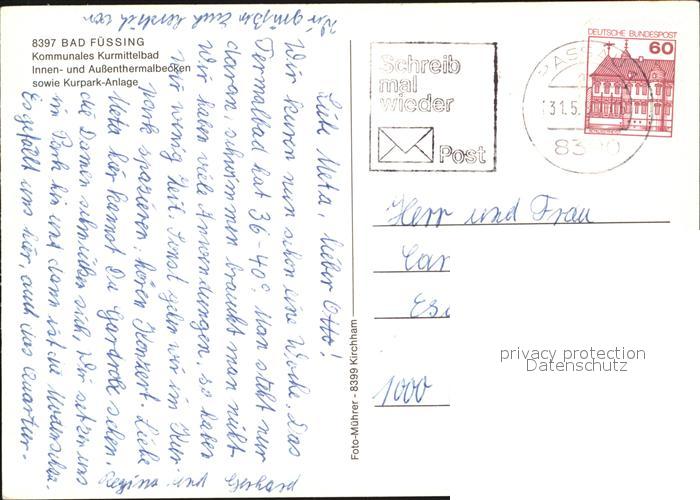 8397 BAD FÜSSING
Kommunales Kurmittelbad
Innen- und Außenthermalbecken
sowie Kurpark-Anlage
Liebe Meta, lieber Otto!
Wir kuren nun schon eine Woche. Das
Termalbad hat 36-40°. Man steht nur
daran, schwimmen braucht man nicht.
Wir haben viele Anwendungen, so haben
wir wenig Zeit. Sonst gehn wir im Kur-
park spazieren, hören Konzert. Liebe
Meta hier kannst Du Garderobe sehen.
die Damen schmücken sich, wir setzen uns
im Park hin und dann ist die Modenschau.
Es gefällt uns hier, auch das Quartier.
Wir grüßen Euch herzlich von
Regina und
Foto-Mührer - 8399 Kirchham
Schreib
mal
wieder
Post
PASSAU
31.5.
8390
DEUTSCHE BUNDESPOST
60
Herr und Frau
Car
1000
privacy protection
Datenschutz